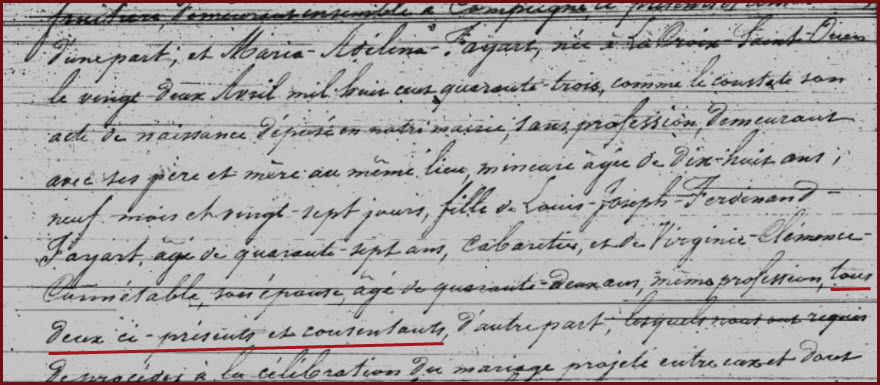 fruitière, demeurant ensemble à Compiègne, ci présents et
d'une part; et Maria-Adelina-Fayart, née à La Croix-Saint-Ouen
le vingt-deux Avril mil huit cent quarante-trois, comme le constate son
acte de naissance déposé en notre mairie, sans profession, demeurant
avec ses père et mère au même lieu, mineure âgée de dix-huit ans,
neuf mois et vingt-sept jours, fille de Louis-Joseph-Ferdinand-
Fayart, âgé de quarante-sept ans, Cabaretier, et de Virginie-Clémence-
Connétable, son épouse, âgé de quarante-deux ans, même profession, tous
deux ci-présents et consentants, d'autre part, lesquels nous ont requis
de procéder à la célébration du mariage projeté entre eux et dont